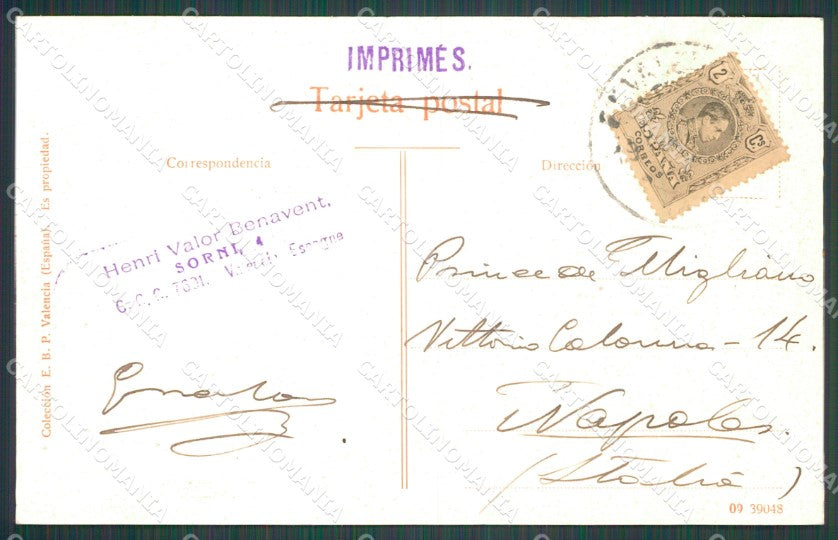 IMPRIMÉS.
Tarjeta postal
Correspondencia
Dirección
2 Cs
CORREOS
Henri Valor Benavent.
SORNI, 4
C. C. C. 7601. Espagne
Prince de Migliano
Vittorio Colonna - 14.
Napoles.
(Italia)
Colección E. B. P. Valencia (España). Es propiedad.
09 39048
CARTOLINOMANIA